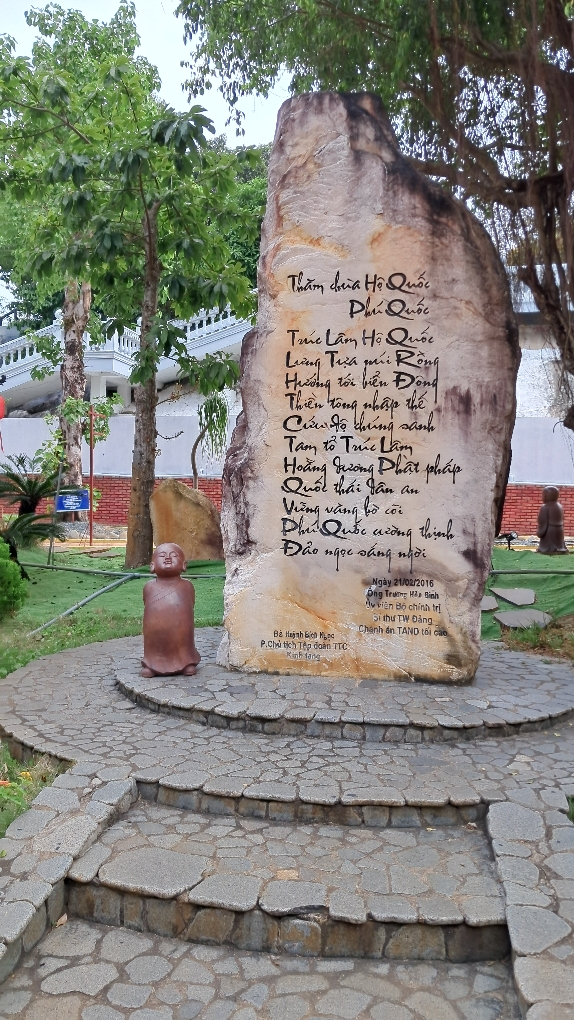 Thăm chùa Hộ Quốc
Phú Quốc
Trúc Lâm Hộ Quốc
Lưng Tựa núi Rồng
Hướng tới biển Đông
Thiền tông nhập thế
Cứu độ chúng sanh
Tam tổ Trúc Lâm
Hoằng dương Phật pháp
Quốc thái dân an
Vững vàng bờ cõi
Phú Quốc cường thịnh
Đảo ngọc sáng ngời
Ngày 21/02/2016
Ông Trương Hòa Bình
Ủy viên Bộ chính trị
Bí thư TW Đảng
Chánh án TAND tối cao
Bà Huỳnh Bích Ngọc
P.Chủ tịch Tập đoàn TTC
Kính tặng